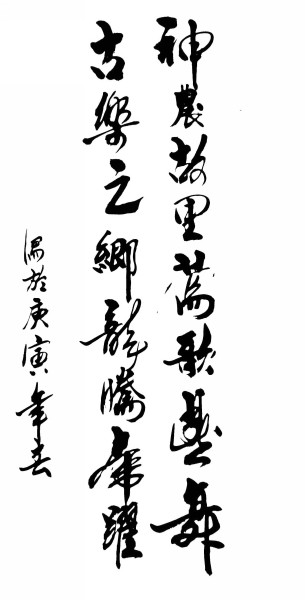 神農故里鶯歌燕舞
古樂之鄉龍騰虎躍
於庚寅年春